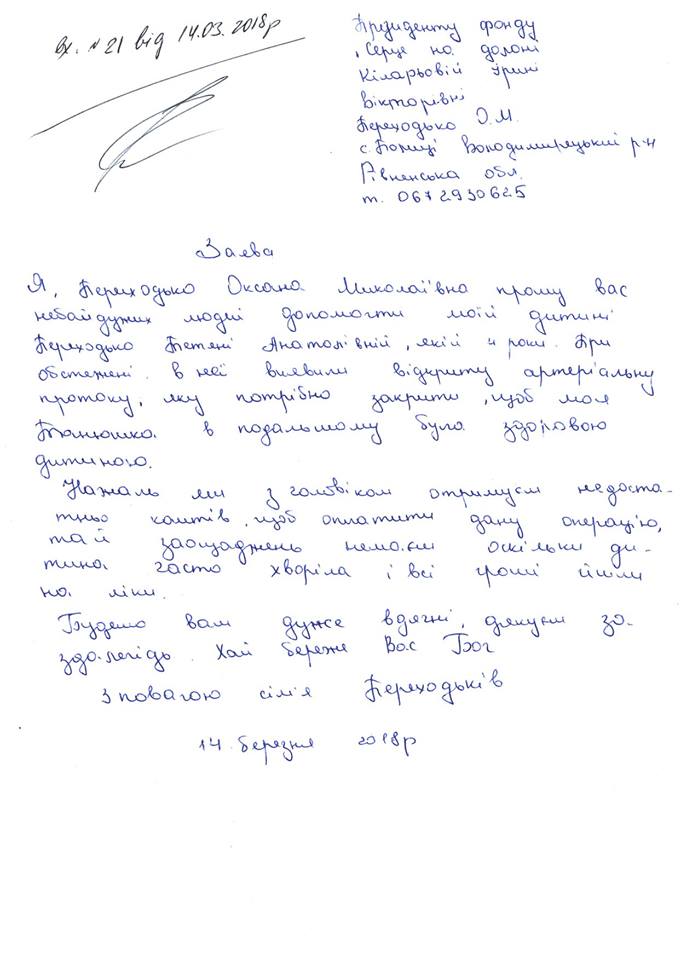 Вх. № 21 від 14.03.2018р
Президенту фонду
„Серце на долоні
Кіларьовій Ірині
Вікторівні
Переходько О.М.
Володимирецький р-н
Рівненська обл.
т. 0672930625
Заява
Я, Переходько Оксана Миколаївна прошу вас
небайдужих людей допомогти моїй дитині
Переходько Тетяні Анатоліївній, якій 4 роки. При
обстежені в неї виявили відкриту артеріальну
протоку, яку потрібно закрити, щоб моя
Танюшка в подальшому була здоровою
дитиною.
Нажаль ми з головіком отримуєм недоста-
тньо коштів, щоб оплатити дану операцію,
та й заощаджень немаєм оскільки ди-
тина часто хворіла і всі гроші йшли
на ліки.
Будемо вам дуже вдячні, дякуєм за-
здалегідь. Хай береже Вас Бог
З повагою сім'я Переходьків
14 березня 2018р